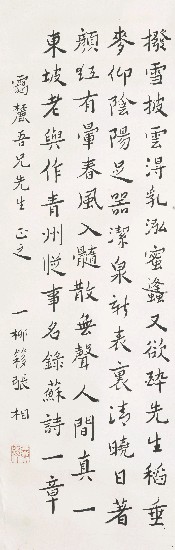 撥雪披雲得乳泓蜜蠭又欲醉先生稻垂
麥仰陰陽足器潔泉新表裏清曉日著
顏紅有暈春風入髓散無聲人間真一
東坡老與作青州從事名錄蘇詩一章
麓吾兄先生正之 一柳簃張相